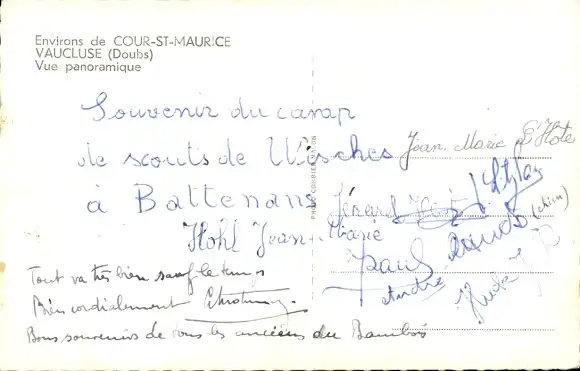 Environs de COUR-ST-MAURICE
VAUCLUSE (Doubs)
Vue panoramique
Souvenir du camp
de scouts de Wisches
à Battenans
Hohl Jean-Marie
Jean Marie L'Hote
Gérard
(chien)
Paul
André
Tout va très bien sauf le temps
Bien cordialement
Bons souvenirs de tous les anciens du
PHOTO